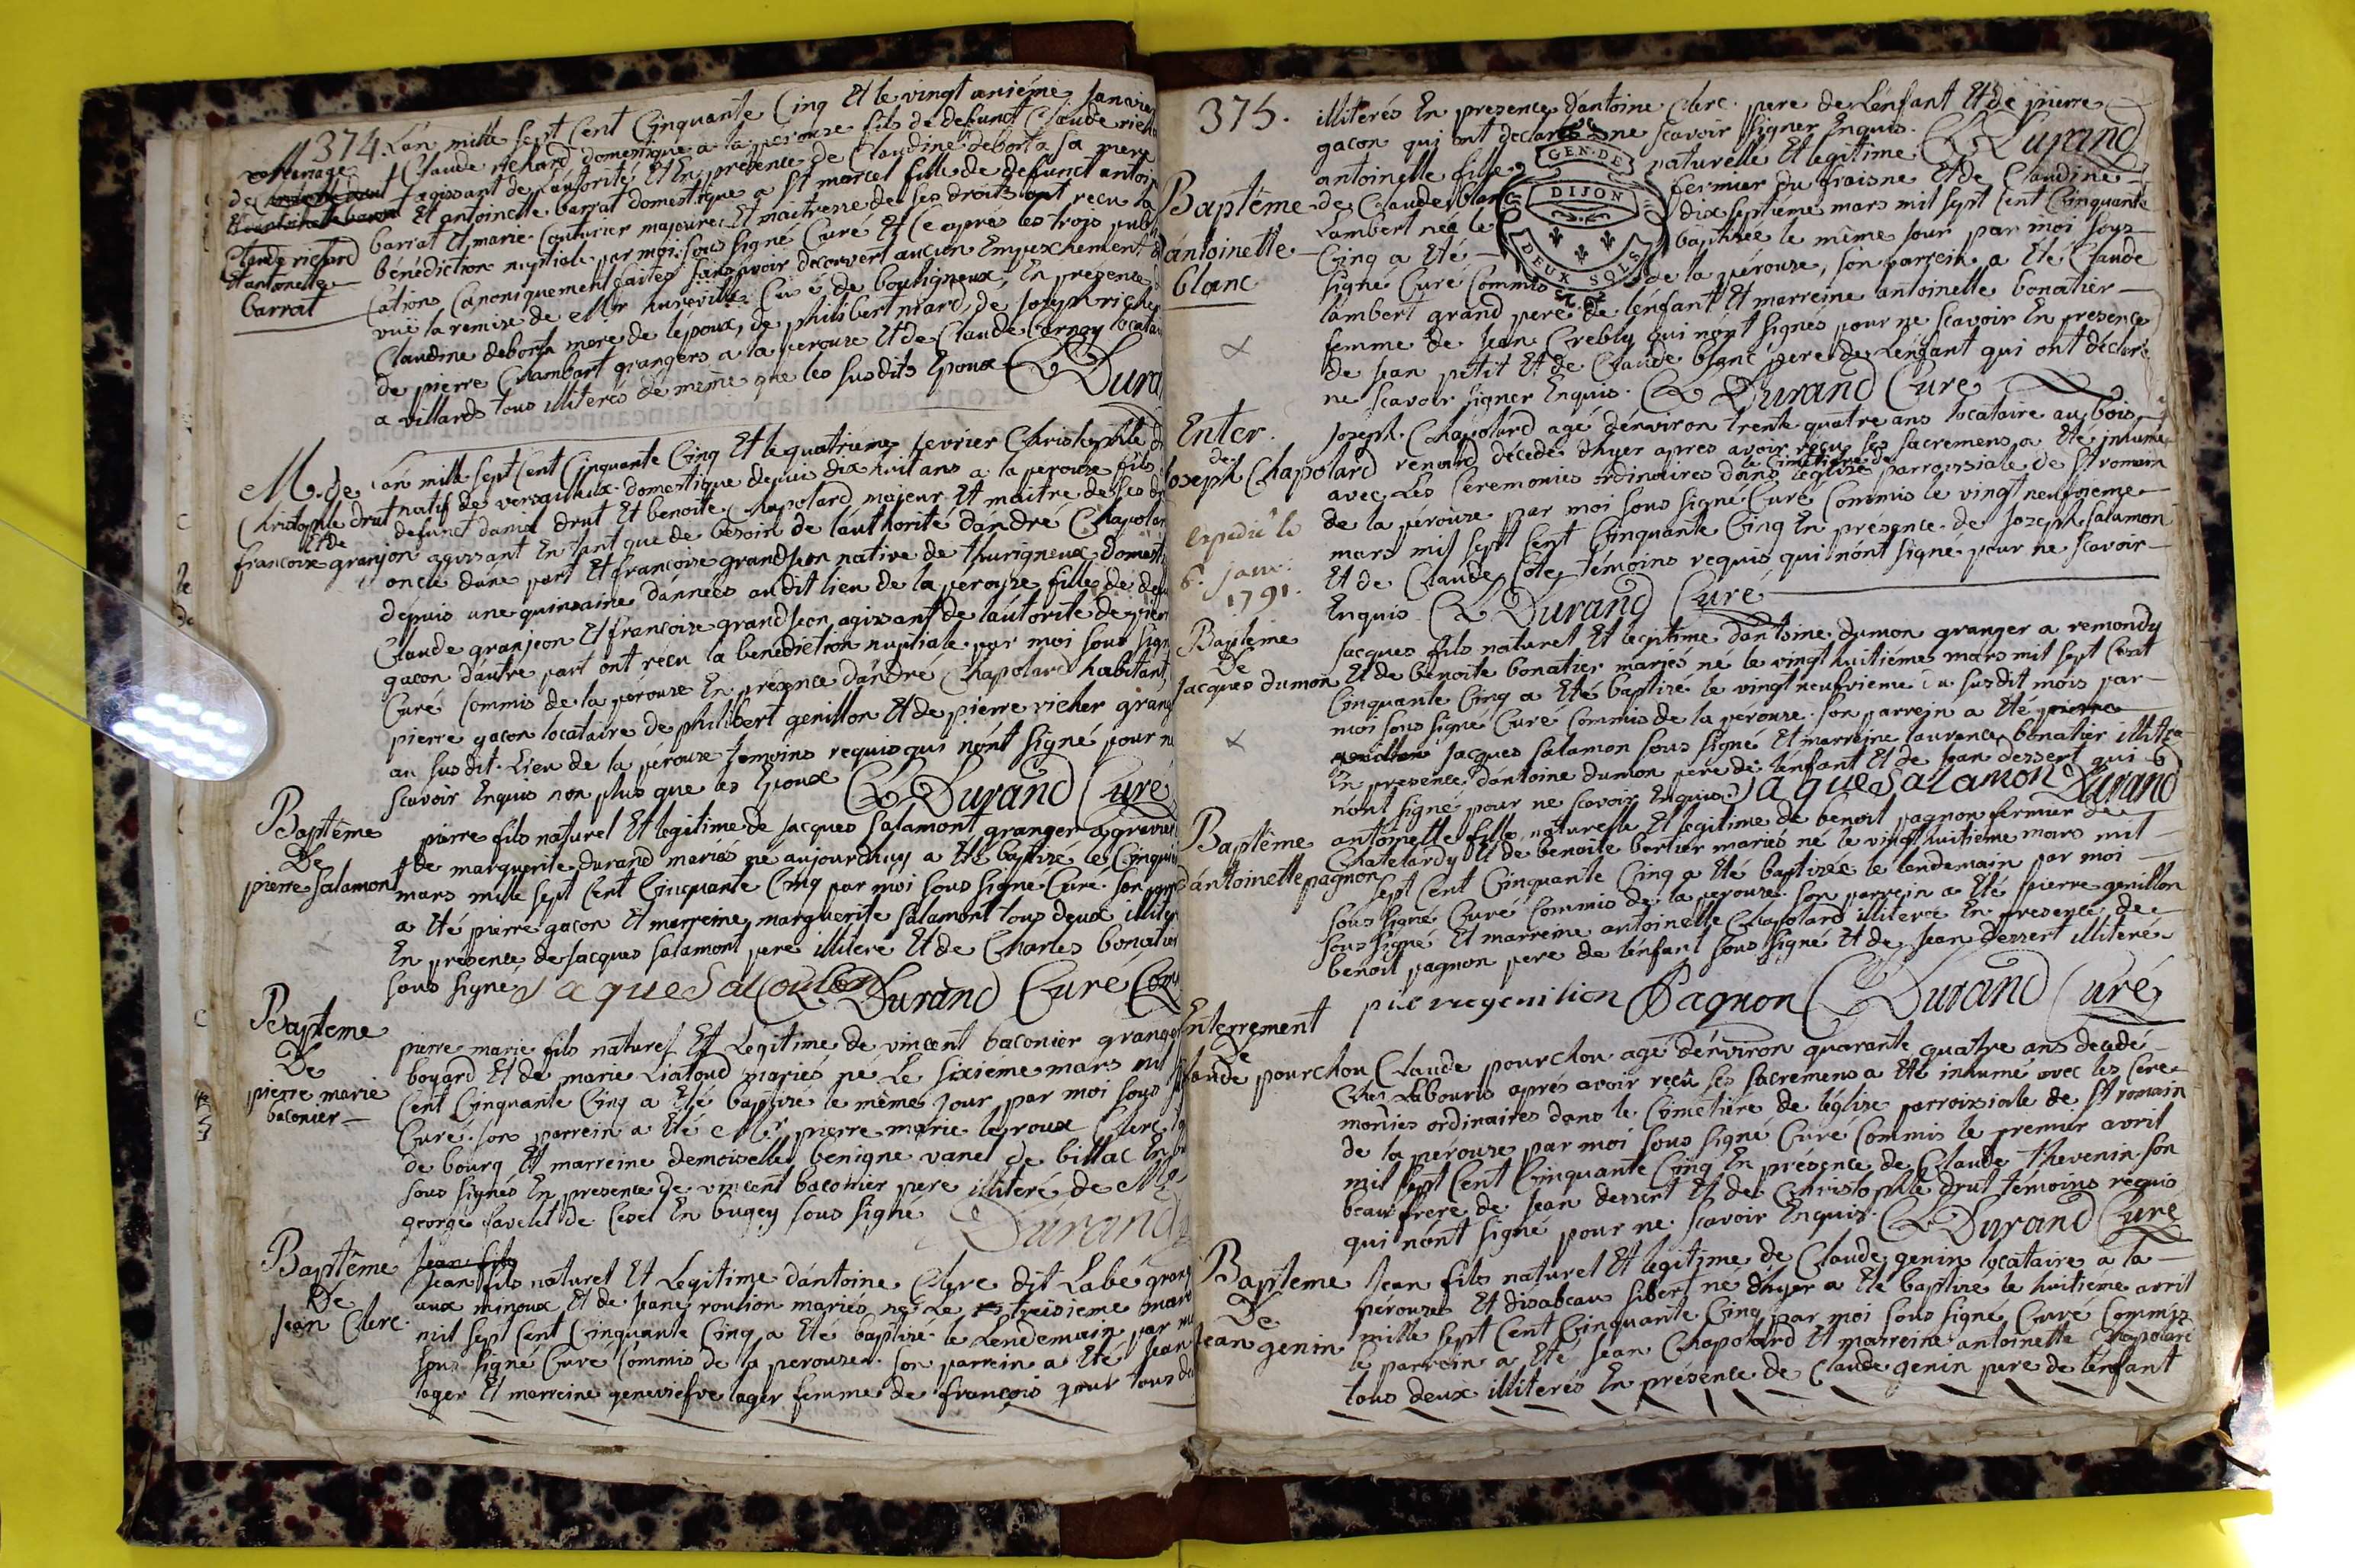 374. L'an mille sept cent cinquante cinq Et le vingt unième Janvier
Mariage
Claude richard domestique a la perouse fils de defunct Claude
de agissant de l'autorité Et En présence de Claudine deborta sa mere
Et antoinette barrat domestique a St marcel fille de defunct
Claude richard
Et antoinette
barrat
barrat Et marie Couturier majeure Et maitresse de ses droits ont recu la
bénédiction nuptiale par moi sous signé Curé Et Ce apres les trois
cations Canoniquement faites sans avoir decouvert aucun Empeschement
vuë la remise de Mr Curé de bouligneux, En presence
Claudine deborta mere de l'époux, de philibert de Joseph
de pierre Chambart grangers a la perouse Et de Claude Carnay
a villards tous illiterés de même que les susdits Epoux Durand
M. de
Christophle drut
Et de
francoise granjon
L'an mille sept Cent Cinquante Cinq Et le quatrieme fevrier Christophle
natif de versailleux domestique depuis dix huit ans a la perouse fils
defunct daniel drut Et benoite Chapolard majeur Et maitre de ses
agissant En tant que de besoin de l'authorité d'andré
oncle d'une part Et francoise grandjeon native de thurigneux
depuis une quinzaine d'années au dit lieu de la perouse fille de
Claude granjeon Et francoise grandjeon agissant de l'autorité de
gacon d'autre part ont récu la benediction nuptiale par moi sous
Curé Commis de la perouse En présence d'andré Chapolard habitant
pierre gacon locataire de philibert genillon Et de pierre richer
au susdit Lieu de la pérouse temoins requis qui n'ont signé pour
scavoir Enquis non plus que les Epoux Durand Curé
Baptême
De
pierre Salamon
pierre fils naturel Et legitime de Jacques Salamont granger a
de marguerite durand mariés né aujourdhuy a Eté baptisé le
mars mille sept Cent Cinquante Cinq par moi sous signé Curé son
a Eté pierre gacon Et marreine marguerite Salamont tous deux
En présence de Jacques Salamont pere illiteré Et de Charles
sous signé Durand Curé
Bapteme
De
pierre marie
baconier
pierre marie fils naturel Et Legitime de vincent baconier granger
boyard Et de marie Liatoud mariés né Le sixiéme mars mil
Cent Cinquante Cinq a Eté baptisé le même Jour par moi sous
Curé. son parrein a Eté Mr pierre marie leroux Clerc
de bourg Et marreine demoiselle benigne vanel de billac
sous signés En presence de vincent baconier pere illiteré de Mr
george favelet de Cesel En bugey sous signé Durand
Baptême
De
Jean Clerc
Jean fils
Jean fils naturel Et Legitime d'antoine Clerc dit Labé
aux minoux Et de Jeane roulion mariés né Le treisieme mars
mil sept Cent Cinquante Cinq a Eté baptisé le Lendemain par
sous signé Curé Commis de la perouse. son parrein a Eté Jean
lager Et marreine geneviefve lager femme de françois tous
375. illiterés En presence d'antoine Clerc pere de L'enfant Et de pierre
gacon qui ont declaré ne scavoir signer Enquis. Durand
GEN. DE
DIJON
DEUX SOLS
Baptême
d'antoinette
blanc
antoinette fille naturelle Et legitime
de Claude blanc fermier du fraisne Et de Claudine
Lambert née le dix septiéme mars mil sept Cent Cinquante
Cinq a Eté baptisée le même Jour par moi sous
signé Curé Commis de la pérouse, son parrein a Eté Claude
lambert grand pere de l'enfant Et marreine antoinette bonatier
femme de Jean Crebly qui n'ont signés pour ne scavoir En presence
de Jean petit Et de Claude blanc pere de L'enfant qui ont déclaré
ne scavoir signer Enquis. Durand Curé
Enter.
de
Joseph Chapolard
expedié le
6. janv.
1791.
Joseph Chapolard agé d'environ trente quatre ans locataire au bois
renard décédé d'hyer apres avoir reçu ses sacremens a Eté inhumé
avec Les Ceremonies ordinaires dans le cimetiere de l'église parroissiale de St romain
de la pérouse par moi sous signé Curé Commis le vingt neufvieme
mars mil sept Cent Cinquante Cinq En présence de Joseph Salamon
Et de Claude Cote témoins requis qui n'ont signé pour ne scavoir
Enquis Durand Curé
Bapteme
De
Jacques dumon
Jacques fils naturel Et legitime d'antoine dumon granger a remondy
Et de benoite bonatier mariés né le vingt huitiéme mars mil sept Cent
Cinquante Cinq a Eté baptisé le vingt neufvieme du susdit mois par
moi sous signé Curé Commis de la pérouse. son parrein a Eté pierre
genillon Jacques Salamon sous signé Et marreine laurence bonatier
En presence d'antoine dumon pere de l'enfant Et de Jean dessert qui
n'ont signé pour ne scavoir Enquis. Jaque Salamon Durand
Baptême
d'antoinette pagnon
antoinette fille naturelle Et legitime de benoit pagnon fermier de
Chatelardy Et de benoite bertier mariés né le vingt huitieme mars mil
sept Cent Cinquante Cinq a Eté baptisée le lendemain par moi
sous signé Curé Commis de la perouse. son parrein a Eté pierre genillon
sous signé Et marreine antoinette Chapolard illiteré En presence de
benoit pagnon pere de l'enfant sous signé Et de Jean dessert illiteré
pierre genilion Pagnon Durand Curé
Enterrement
De
Claude pourchou
Claude pourchou agé d'environ quarante quatre ans decedé
Chez Labouris aprés avoir reçû ses sacremens a Eté inhumé avec les Cere-
monies ordinaires dans le Cimétiere de l'église parroissiale de St romain
de la pérouse par moi sous signé Curé Commis le premier avril
mil sept Cent Cinquante Cinq En présence de Claude thevenin son
beaufrere de Jean dessert Et de Christophle drut témoins requis
qui n'ont signé pour ne scavoir Enquis. Durand Curé
Bapteme
De
Jean genin
Jean fils naturel Et legitime de Claude genin locataire a la
pérouse Et d'isabeau sibert né d'hyer a Eté baptisé le huitieme avril
mille sept Cent Cinquante Cinq par moi sous signé Curé Commis
le parrein a Eté Jean Chapolard Et marreine antoinette Chapolard
tous deux illiterés En présence de Claude genin pere de l'enfant